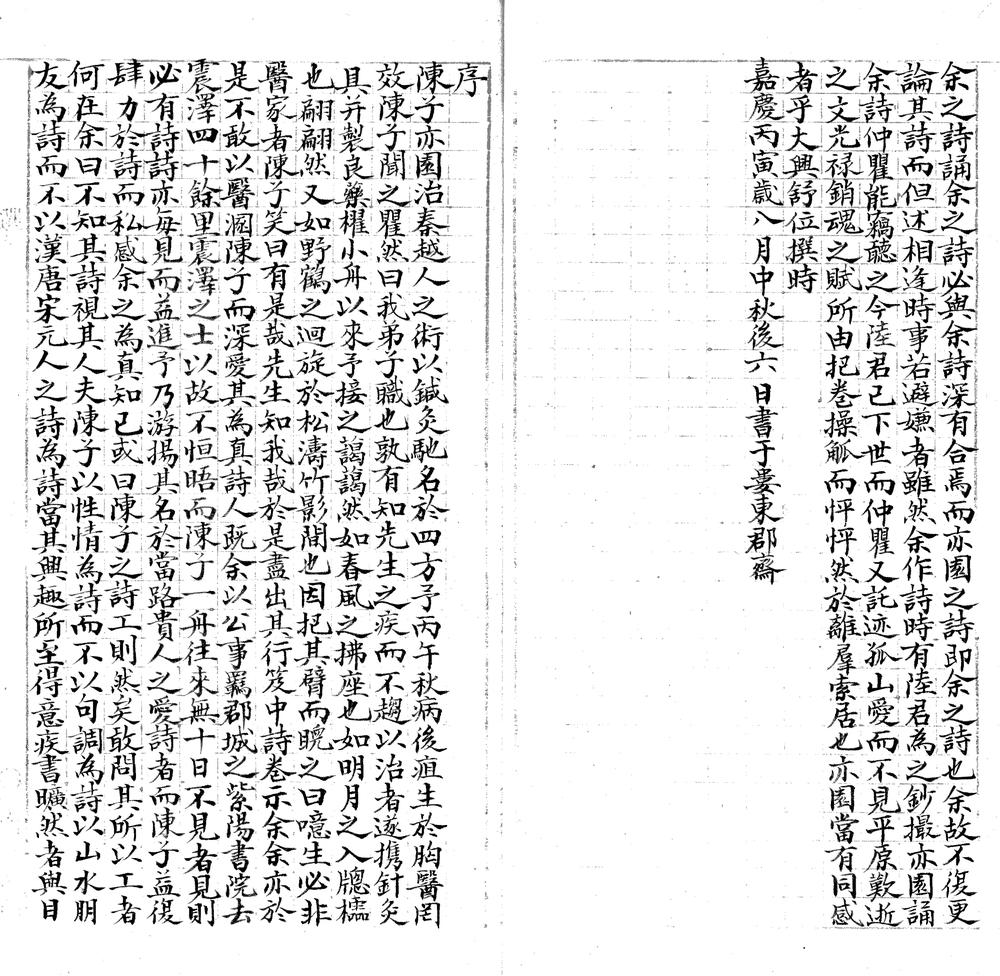 余之詩誦余之詩必與余詩深有合焉而亦園之詩即余之詩也余故不復更
論其詩而但述相逢時事若避嫌者雖然余作詩時有陸君為之鈔撮亦園誦
余詩仲瞿能竊聽之今陸君已下世而仲瞿又託迹孤山愛而不見平原歎逝
之文光祿銷魂之賦所由把卷操觚而怦怦然於離羣索居也亦園當有同感
者乎大興舒位撰時
嘉慶丙寅歲八月中秋後六日書于婁東郡齋
序
陳子亦園治秦越人之術以鍼灸馳名於四方予丙午秋病後疽生於胸醫罔
效陳子聞之瞿然曰我弟子職也孰有知先生之疾而不趨以治者遂携針灸
具并製良藥櫂小舟以來予接之藹藹然如春風之拂座也如明月之入牕櫺
也翩翩然又如野鶴之迴旋於松濤竹影間也因把其臂而睨之曰噫生必非
醫家者陳子笑曰有是哉先生知我哉於是盡出其行笈中詩卷示余余亦於
是不敢以醫溷陳子而深愛其為真詩人旣余以公事羈郡城之紫陽書院去
震澤四十餘里震澤之士以故不恒晤而陳子一舟往來無十日不見者見則
必有詩詩亦每見而益進予乃游揚其名於當路貴人之愛詩者而陳子益復
肆力於詩而私感余之為真知己或曰陳子之詩工則然矣敢問其所以工者
何在余曰不知其詩視其人夫陳子以性情為詩而不以句調為詩以山水朋
友為詩而不以漢唐宋元人之詩為詩當其興趣所至得意疾書曠然者與目